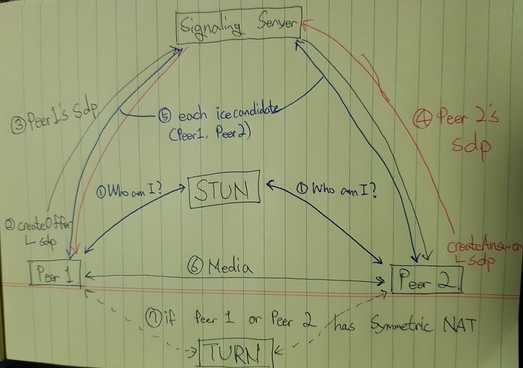 Signaling Server
③ Peer1's Sdp
⑤ each icecandidate
(Peer1, Peer2)
④ Peer 2's
Sdp
① Who am I?
STUN
① Who am I?
② createOffer
└ sdp
createAnswer
└ sdp
Peer 1
⑥ Media
Peer 2
⑦ if Peer 1 or Peer 2 has Symmetric NAT
TURN